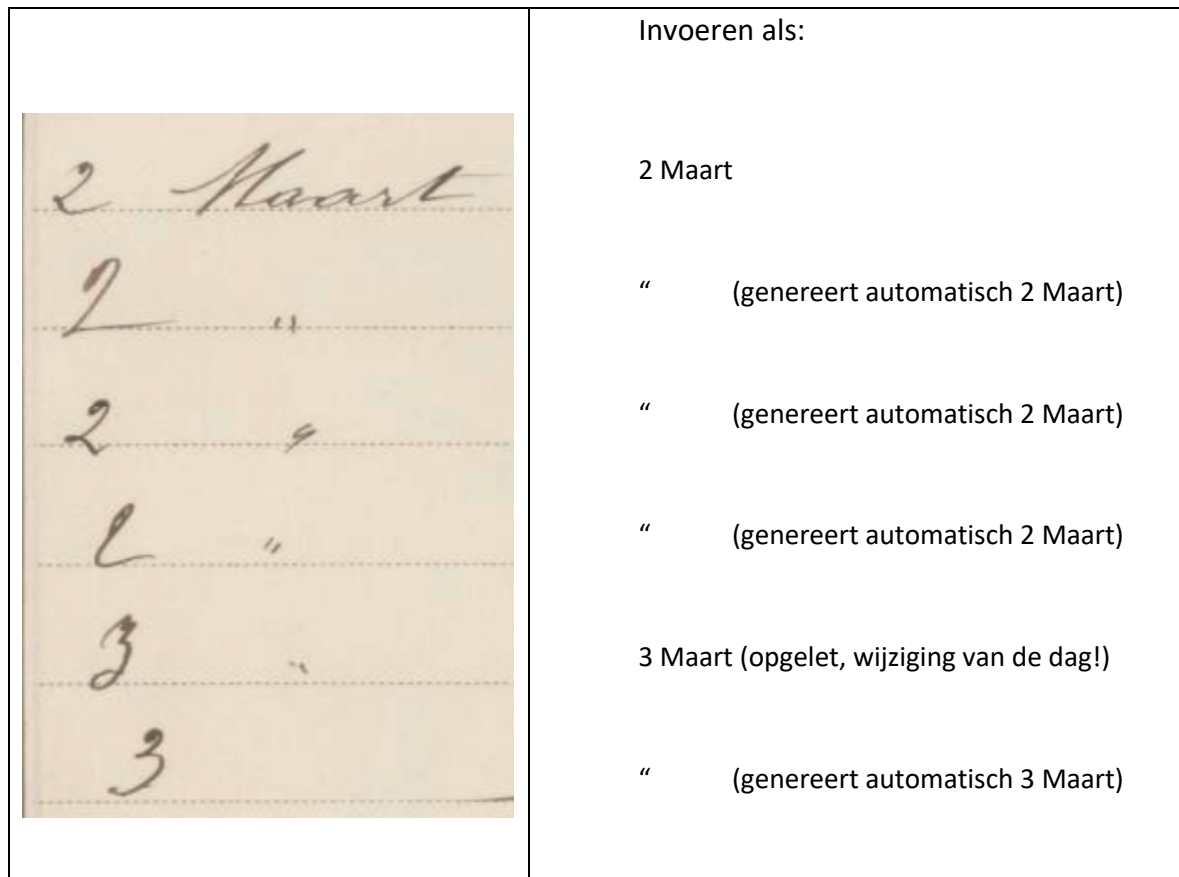 Invoeren als:
2 Maart
2 Maart
2 "
“ (genereert automatisch 2 Maart)
2 "
“ (genereert automatisch 2 Maart)
2 "
“ (genereert automatisch 2 Maart)
3 "
3 Maart (opgelet, wijziging van de dag!)
3
“ (genereert automatisch 3 Maart)